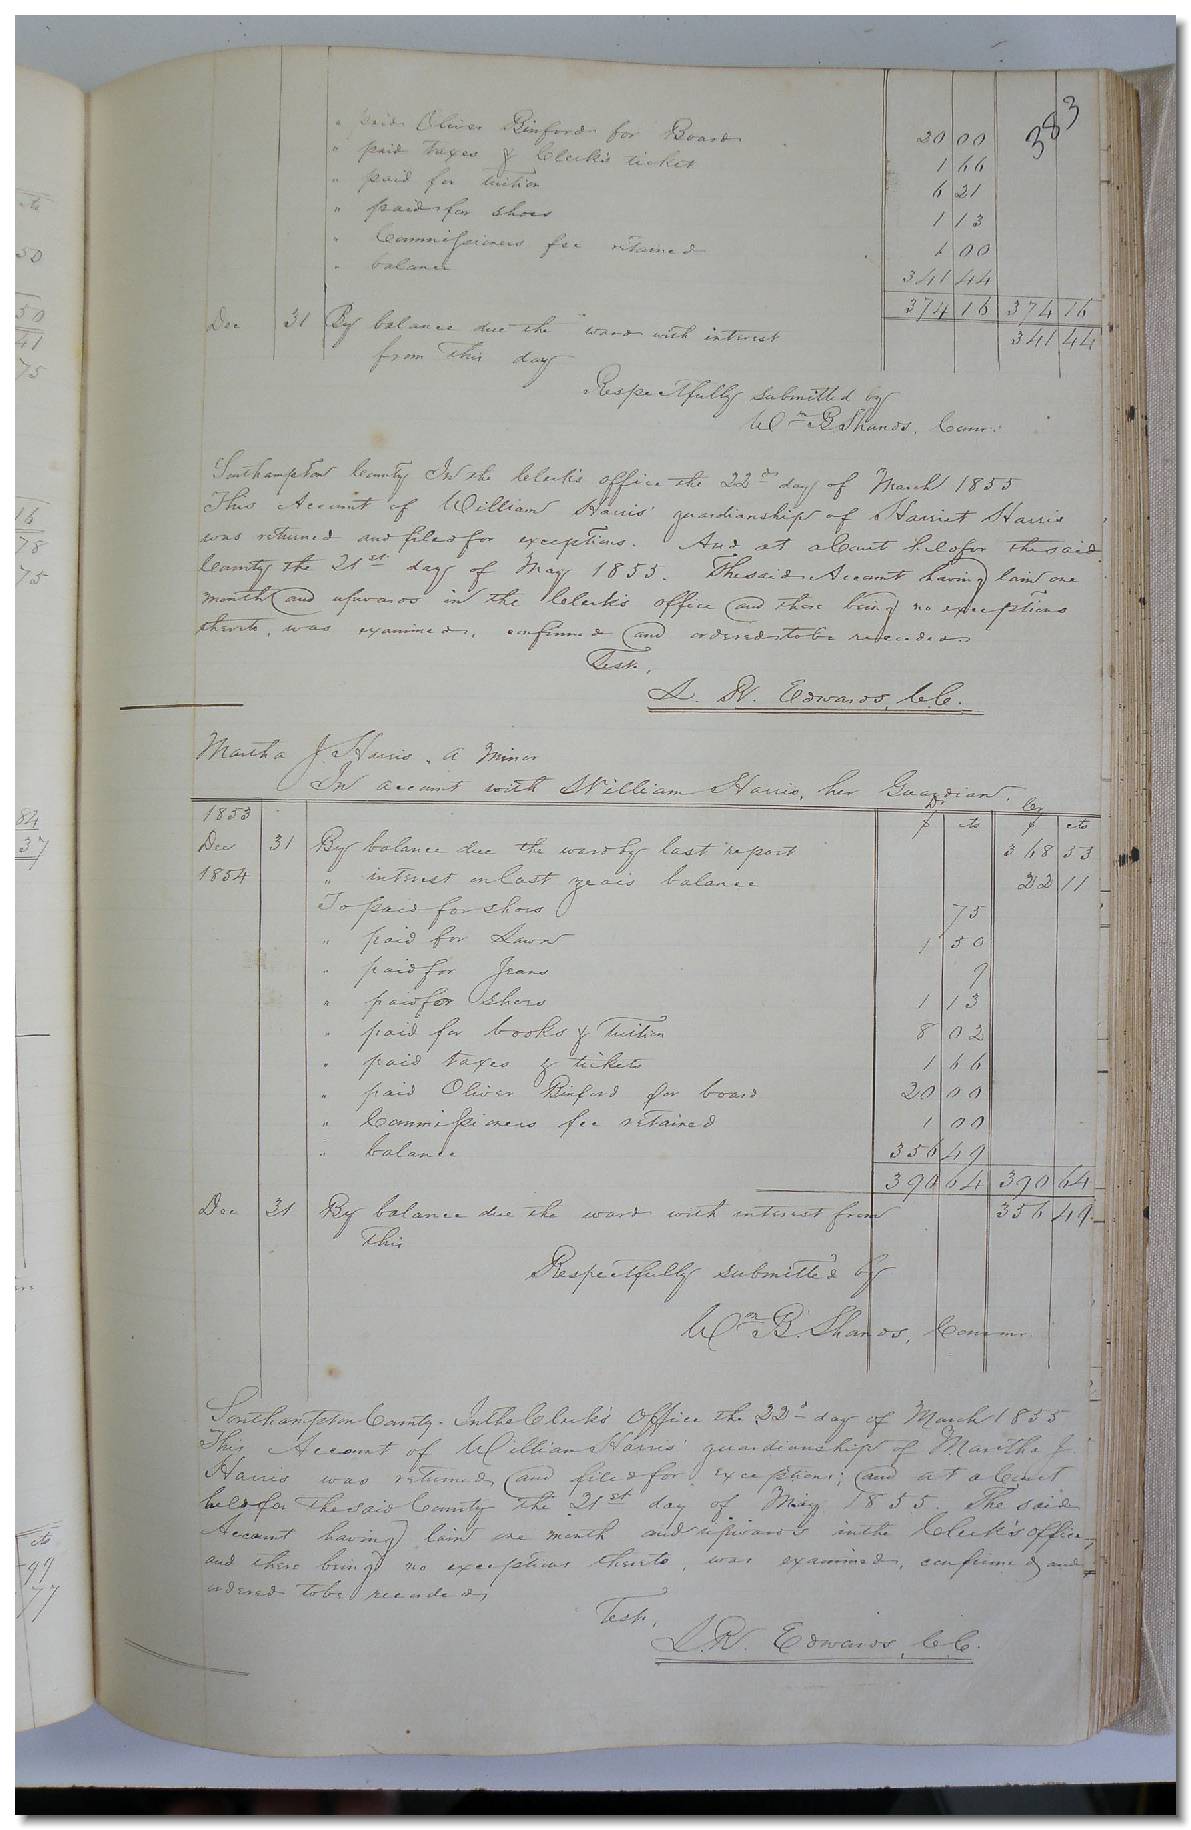 383
" paid Oliver Binford for Board 20 00
" paid taxes & Clerk's ticket 1 66
" paid for tuition 6 21
" paid for shoes 1 13
" Commissioners fee retained 1 00
" balance 341 44
374 16 374 16
Dec 31 By balance due the ward with interest 341 44
from this day
Respectfully submitted by
Wm B Shands, Comr.
Southampton County In the Clerk's office the 22nd day of March 1855
This Account of William Harris' guardianship of Harriet Harris
was returned and filed for exceptions. And at a Court held for the said
County the 21st day of May 1855. The said Account having lain one
month and upwards in the Clerk's office and there being no exceptions
thereto, was examined, confirmed and ordered to be recorded
Teste,
L. R. Edwards, C.C.
Martha J. Harris, a minor
In account with William Harris, her Guardian.
Dr Cr
1853 $ cts $ cts
Dec 31 By balance due the ward by last report 368 53
1854 " interest on last years balance 22 11
To paid for shoes 75
" paid for Lawn 1 50
" paid for Jeans 9
" paid for shoes 1 13
" paid for books & tuition 8 02
" paid taxes & tickets 1 66
" paid Oliver Binford for board 20 00
" Commissioners fee retained 1 00
" balance 356 49
390 64 390 64
Dec 31 By balance due the ward with interest from 356 49
this
Respectfully submitted by
Wm B. Shands, Comm
Southampton County. In the Clerk's Office the 22d day of March 1855
This Account of William Harris' guardianship of Martha J.
Harris was returned and filed for exceptions; and at a Court
held for the said County the 21st day of May 1855. The said
Account having lain one month and upwards in the Clerk's office,
and there being no exceptions thereto, was examined, confirmed and
ordered to be recorded,
Teste,
L. R. Edwards, C.C.
cts
50
50
41
75
16
78
75
84
37
cts
99
77